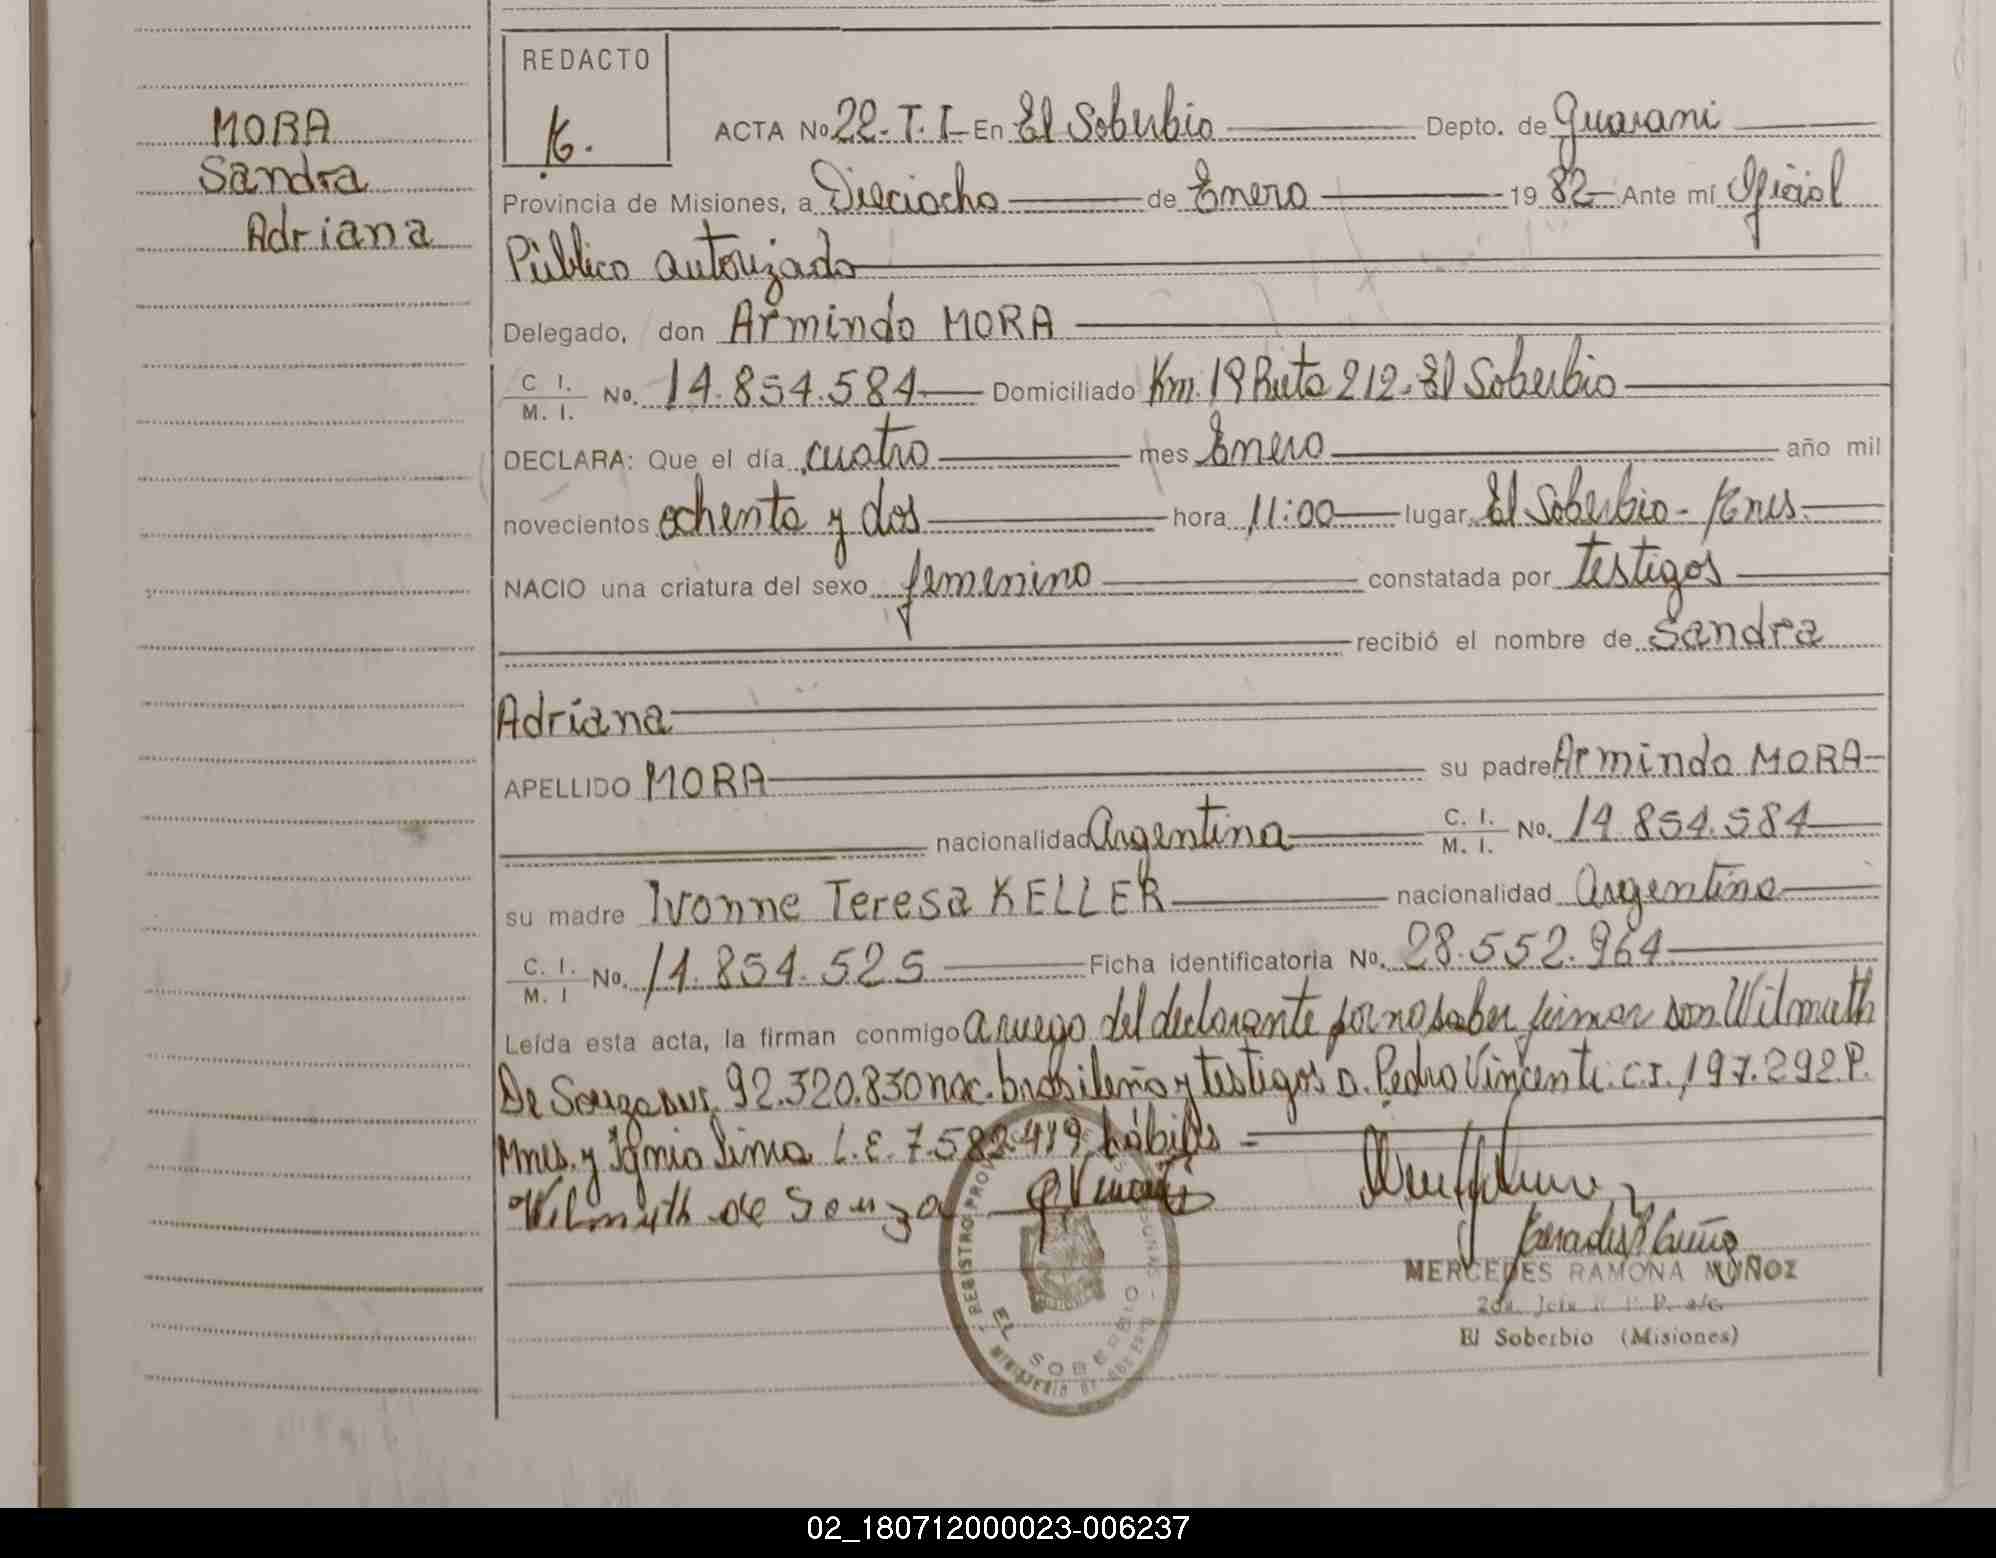 MORA
Sandra
Adriana
REDACTO
ACTA No 22-T.I- En El Soberbio Depto. de Guarani
Provincia de Misiones, a Dieciocho de Enero 1982- Ante mí Oficial
Público autorizado
Delegado, don Armindo MORA
C I. M. I. No. 14.854.584 Domiciliado Km. 19 Ruta 212-El Soberbio
DECLARA: Que el día cuatro mes Enero año mil
novecientos ochenta y dos hora 11:00 lugar El Soberbio-
NACIO una criatura del sexo femenino constatada por testigos
recibió el nombre de Sandra
Adriana
APELLIDO MORA su padre Armindo MORA-
nacionalidad Argentina C. I. M. I. No. 14.854.584
su madre Ivonne Teresa KELLER nacionalidad Argentina
C. I. M. I No. 14.854.525 Ficha identificatoria No. 28.552.964
Leída esta acta, la firman conmigo a ruego del declarante por no saber firmar don Wilmuth
De Souza 92.320.830 nac. brasileño y testigos D. Pedro Vincenti C.I. 197.292 P.
Mnes. y Lima L.E. 7.582.419 hábiles =
Wilmuth de Souza
MERCEDES RAMONA MUÑOZ
El Soberbio (Misiones)
REGISTRO PROV
EL SOBERBIO
MINISTERIO DE GOBIERNO
02_180712000023-006237